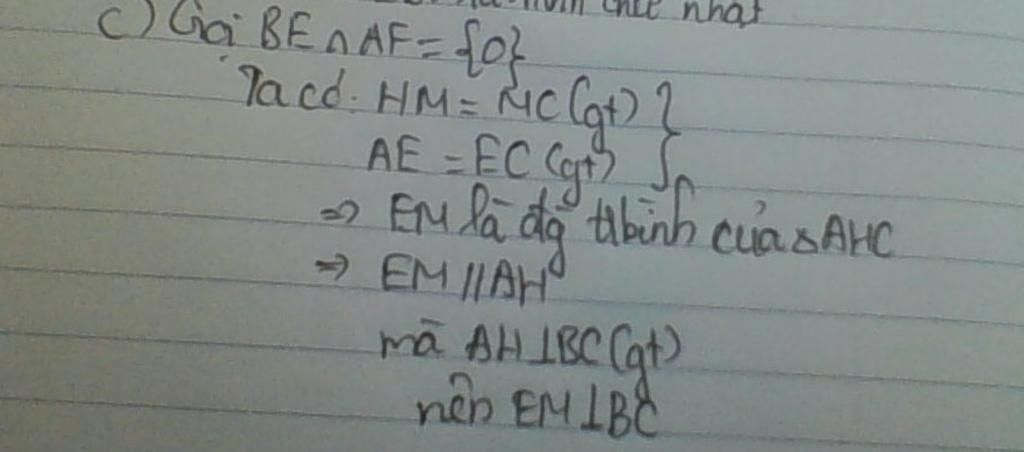 hình chữ nhật
c) Gọi BE ∩ AF = {O}
Ta có. HM = MC (gt) }
AE = EC (gt)
⇒ EM là đg tbình của △AHC
⇒ EM // AH
mà AH ⊥ BC (gt)
nên EM ⊥ BC